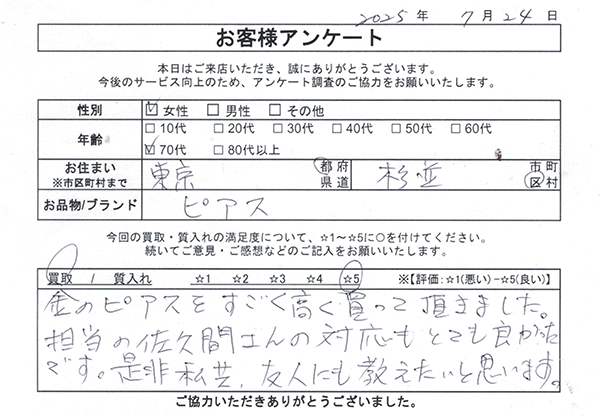 2025年 7月24日
お客様アンケート
本日はご来店いただき、誠にありがとうございます。
今後のサービス向上のため、アンケート調査のご協力をお願いいたします。
性別 ☑女性 □男性 □その他
年齢 □10代 □20代 □30代 □40代 □50代 □60代
☑70代 □80代以上
お住まい ※市区町村まで 東京 都府県道 杉並 市町区村
お品物/ブランド ピアス
今回の買取・質入れの満足度について、☆1～☆5に○を付けてください。
続いてご意見・ご感想などのご記入をお願いいたします。
買取 / 質入れ ☆1 ☆2 ☆3 ☆4 ☆5 ※【評価:☆1(悪い)－☆5(良い)】
金のピアスをすごく高く買って頂きました。
担当の佐久間さんの対応もとても良かった
です。是非私共、友人にも教えたいと思います。
ご協力いただきありがとうございました。